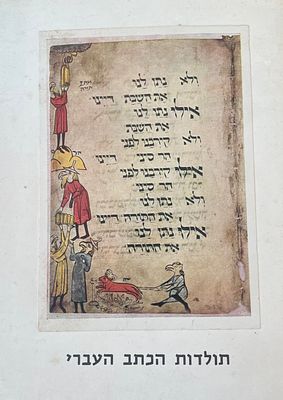 ולא נתן לנו
את השבת דיינו
אילו נתן לנו
את השבת
ולא קירבנו לפני
הר סיני דיינו
אילו קירבנו לפני
הר סיני
ולא נתן לנו
את התורה דיינו
אילו נתן לנו
את התורה
תולדות הכתב העברי